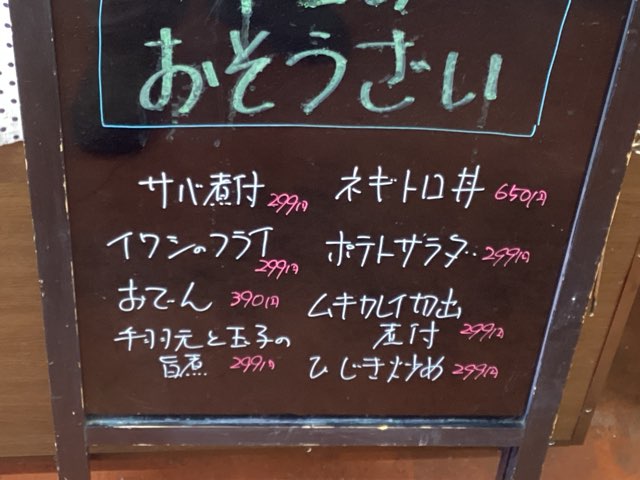 おそうざい
サバ煮付 299円
イワシのフライ 299円
おでん 390円
手羽元と玉子の
旨煮 299円
ネギトロ丼 650円
ポテトサラダ 299円
ムキカレイ切出
煮付 299円
ひじき炒め 299円